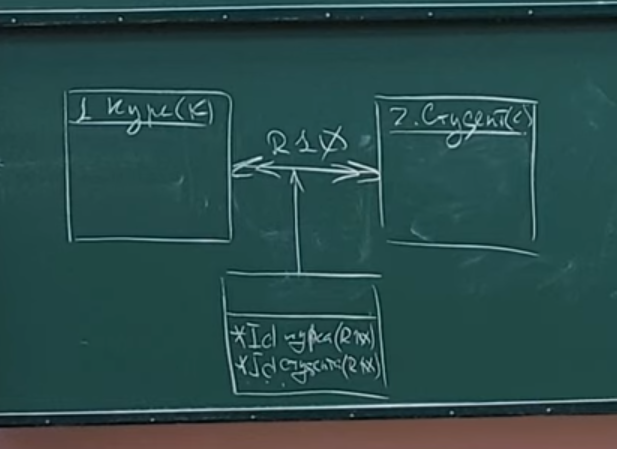 1 Курс(К)
2. Студент(С)
R1Ø
*Id курса(R1Ø)
*Id студента(R1Ø)